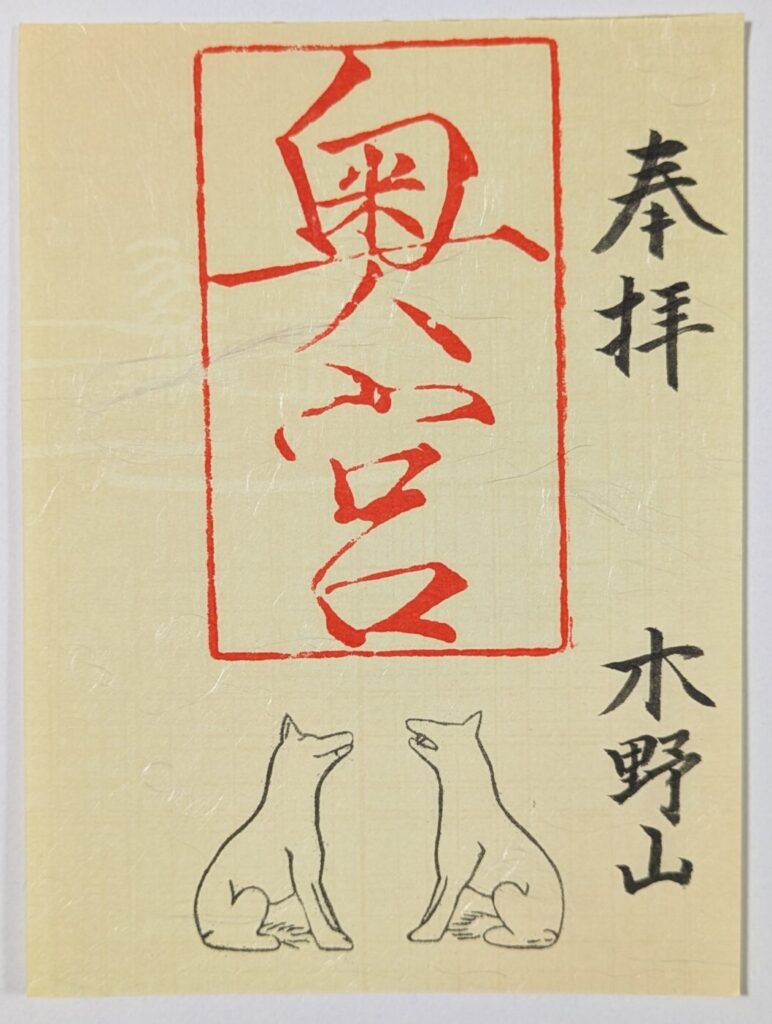 奉拝
木野山
奥宮